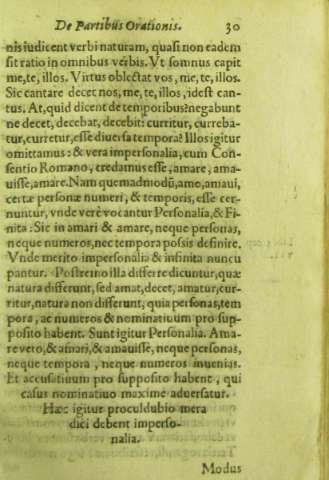 De Partibus Orationis. 30
nis iudicent verbi naturam, quasi non eadem
sit ratio in omnibus verbis. Vt somnus capit
me, te, illos. Virtus oblectat vos, me, te, illos.
Sic cantare decet nos, me, te, illos, idest can-
tus. At, quid dicent de temporibus? negabunt
ne decet, decebat, decebit: curritur, curreba-
tur, curretur, esse diuersa tempora? Illos igitur
omittamus: & vera impersonalia, cum Con-
sentio Romano, credamus esse, amare, ama-
uisse, amare. Nam quemadmodũ, amo, amaui,
certæ personæ numeri, & temporis, esse cer-
nuntur, vnde verè vocantur Personalia, & Fi-
nita: Sic in amari & amare, neque personas,
neque numeros, nec tempora possis definire.
Vnde merito impersonalia & infinita nuncu
pantur. Postremo illa differre dicuntur, quæ
natura differunt, sed amat, decet, amatur, cur-
ritur, natura non differunt, quia personas, tem
pora, ac numeros & nominatiuum pro sup-
posito habent. Sunt igitur Personalia. Ama-
re vero, & amari, & amauisse, neque personas,
neque tempora, neque numeros inuenias.
Et accusatiuum pro supposito habent, qui
casus nominatiuo maxime aduersatur.
Hæc igitur proculdubio mera
dici debent imperso-
nalia.
Modus